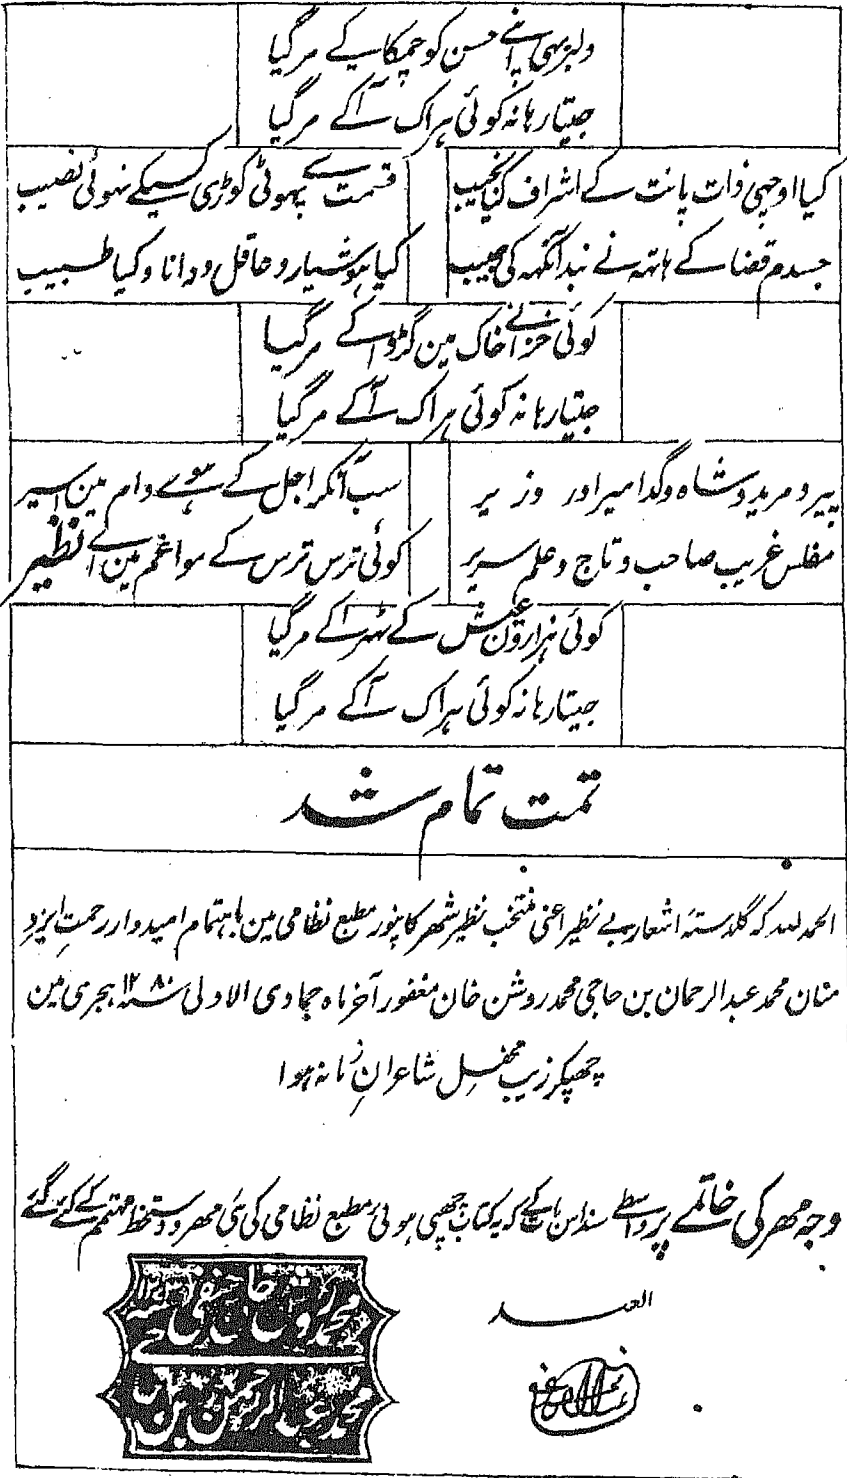 دلبر بھی اپنے حسن کو چمکا کے مر گیا
جیتا رہا نہ کوئی ہر اک آ کے مر گیا
کیا اوچھی ذات پانت کے اشراف کیا نجیب
قسمت سے پھوٹی کوڑی کسیکے نہوئی نصیب
جسدم قضا کے ہاتھ نے بند آنکھ کی حبیب
کیا ہوشیار و عاقل و دانا و کیا طبیب
کوئی خزانے خاک مین گڑوا کے مر گیا
جیتا رہا نہ کوئی ہر اک آ کے مر گیا
پیر و مرید و شاہ و گدا میر اور وزیر
سب آنکر اجل کے ہوے دام مین اسیر
مفلس غریب صاحب و تاج و علم سریر
کوئی ترس ترس کے موا غم مین اے نظیر
کوئی ہزارون عیش کے ٹھہرا کے مر گیا
جیتا رہا نہ کوئی ہر اک آ کے مر گیا
تمت تمام شد
الحمد للہ کہ گلدستۂ اشعار بے نظیر اعنی منتخب نظیر شہر کانپور مطبع نظامی مین باہتمام امیدوار رحمتِ ایزدِ
منان محمد عبد الرحمان بن حاجی محمد روشن خان مغفور آخر ماہ جمادی الاولیٰ سنہ ۱۲۸۰ ہجری مین
چھپکر زیب محفلِ شاعرانِ زمانہ ہوا
وجہ مہر کی خاتمے پر واسطے سند اس بات کے کہ یہ کتاب چھپی ہوئی مطبع نظامی کی ہی مہر و دستخط مہتمم کے کئے گئے
العبد
محمد روشن خان حنفی
محمد عبد الرحمن بن حاجی